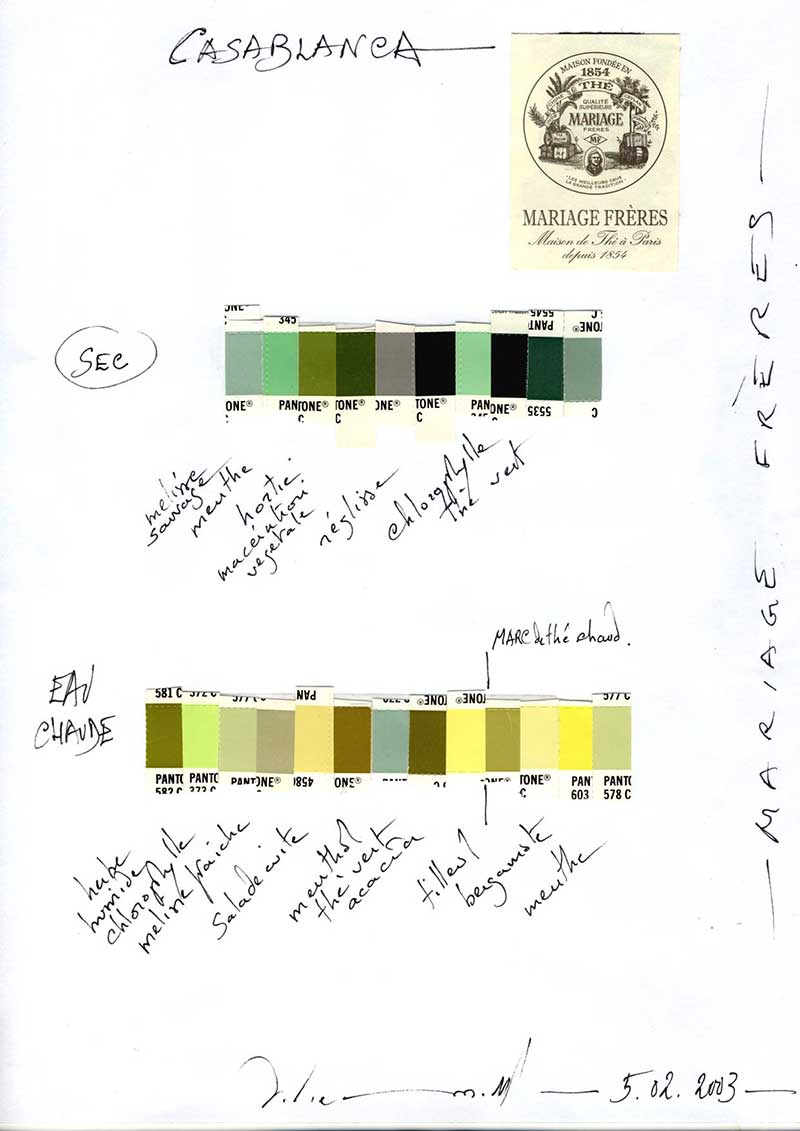 CASABLANCA
MAISON FONDÉE EN
1854
THÉ
QUALITÉ
SUPÉRIEURE
MARIAGE
FRÈRES
MF
"LES MEILLEURS CRUS
LA GRANDE TRADITION"
MARIAGE FRÈRES
Maison de Thé à Paris
depuis 1854
MARIAGE FRÈRES
SEC
345
5545
PANT
TONE®
ONE® PANTONE® TONE® ONE® TONE® PAN ONE® 5535 C
C C C 345
melisse
sauvage
menthe
hortie
macération
vegetale
réglisse
chlorophylle
thé vert
MARC de thé chaud.
EAU
CHAUDE
581 C 372 C 577 C PAN TONE® TONE® 577 C
PANTO PANTO PANTONE® 4585 ONE® ONE® TONE® PAN PANTO
582 C 373 C C 603 578 C
herbe
humide
chlorophylle
melisse fraiche
Salade cuite
menthol
thé vert
acacia
tilleul
bergamote
menthe
5.02.2003